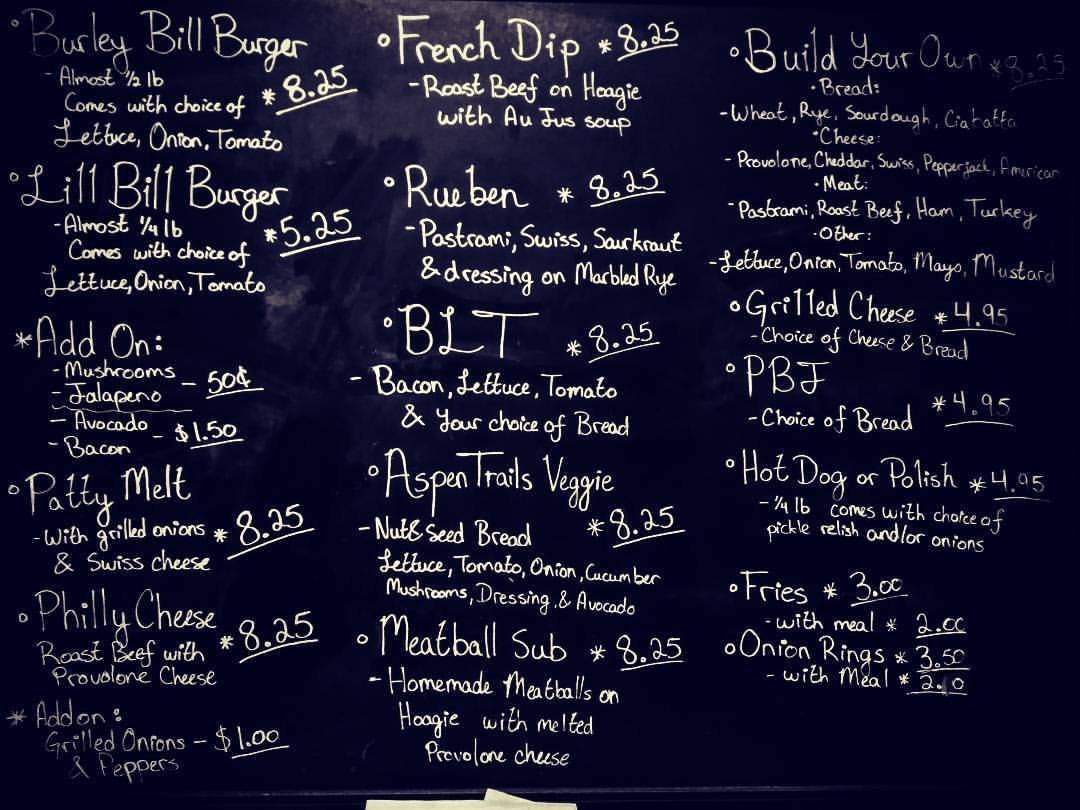 Burley Bill Burger
- Almost 1/2 lb * 8.25
Comes with choice of
Lettuce, Onion, Tomato
Lill Bill Burger
- Almost 1/4 lb * 5.25
Comes with choice of
Lettuce, Onion, Tomato
* Add On:
- Mushrooms
- Jalapeno — 50¢
- Avocado
- Bacon — $1.50
Patty Melt
- With grilled onions * 8.25
& Swiss cheese
Philly Cheese
Roast Beef with * 8.25
Provolone Cheese
* Add on:
Grilled Onions — $1.00
& Peppers
French Dip * 8.25
- Roast Beef on Hoagie
with Au Jus soup
Rueben * 8.25
- Pastrami, Swiss, Saurkraut
& dressing on Marbled Rye
BLT * 8.25
- Bacon, Lettuce, Tomato
& Your choice of Bread
Aspen Trails Veggie
- Nut & Seed Bread * 8.25
Lettuce, Tomato, Onion, Cucumber
Mushrooms, Dressing, & Avocado
Meatball Sub * 8.25
- Homemade Meatballs on
Hoagie with melted
Provolone cheese
Build Your Own * 8.25
• Bread:
- Wheat, Rye, Sourdough, Ciabatta
• Cheese:
- Provolone, Cheddar, Swiss, Pepperjack, American
• Meat:
- Pastrami, Roast Beef, Ham, Turkey
• Other:
- Lettuce, Onion, Tomato, Mayo, Mustard
Grilled Cheese * 4.95
- Choice of Cheese & Bread
PBJ
- Choice of Bread * 4.95
Hot Dog or Polish * 4.95
- 1/4 lb comes with choice of
pickle relish and/or onions
Fries * 3.00
- with meal * 2.00
Onion Rings * 3.50
- with Meal *